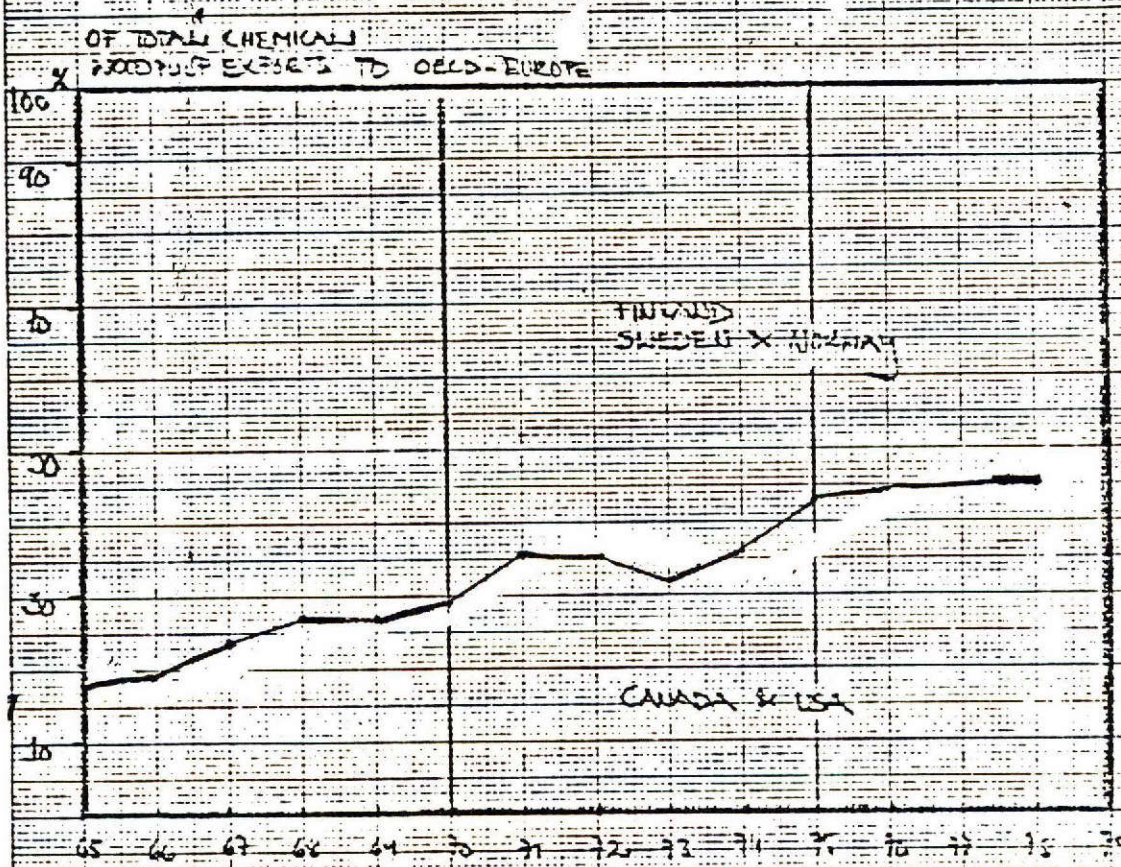 OF TOTAL CHEMICAL
WOODPULP EXPORTS TO OECD-EUROPE
%
100
90
70
FINLAND
SWEDEN & NORWAY
50
30
CANADA & USA
10
65 66 67 68 69 70 71 72 73 74 75 76 77 78 79